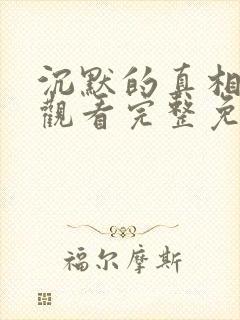 沉默的真相
觀看完整免
福尔摩斯